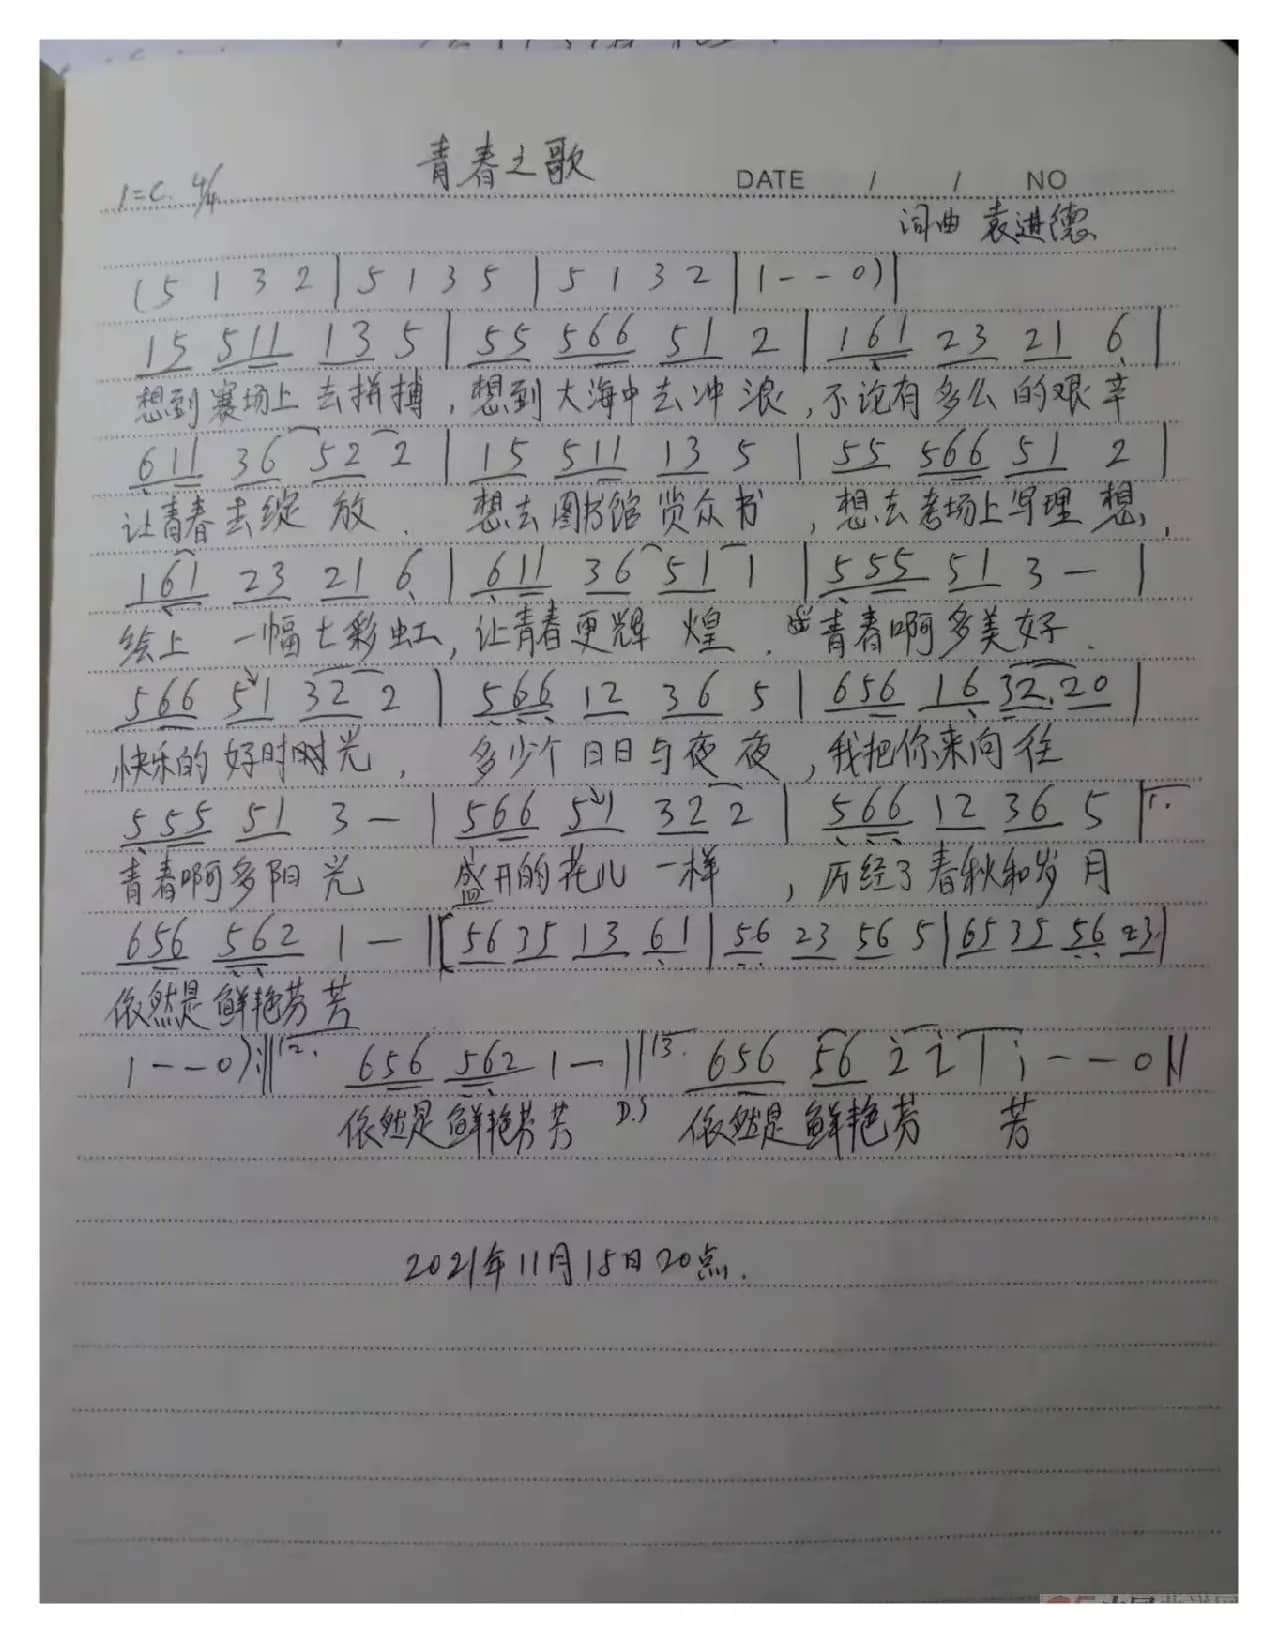 青春之歌
1=C 4/4
DATE / / NO
词曲 袁进德
(5 1 3 2 | 5 1 3 5 | 5 1 3 2 | 1 - - 0) |
15 511 13 5 | 55 566 51 2 | 161 23 21 6 |
想到赛场上去拼搏,想到大海中去冲浪,不论有多么的艰辛
611 36 52 2 | 15 511 13 5 | 55 566 51 2 |
让青春去绽放. 想去图书馆赏众书,想去考场上写理想,
161 23 21 6 | 611 36 51 1 | 555 51 3 - |
绘上一幅七彩虹,让青春更辉煌. 青春啊多美好.
566 51 32 2 | 566 12 36 5 | 656 16 32. 20 |
快乐的好时时光, 多少个日日与夜夜,我把你来向往
555 51 3 - | 566 51 32 2 | 566 12 36 5 | 1.
青春啊多阳光 盛开的花儿一样,历经了春秋和岁月
656 562 1 - || [56 35 13 61 | 56 23 56 5 | 65 35 56 23 |
依然是鲜艳芬芳
1 - - 0) :|| 2. 656 562 1 - || 3. 656 56 2 2 | 1 - - 0 ||
依然是鲜艳芬芳 D.S 依然是鲜艳芬芳
2021年11月15日20点.